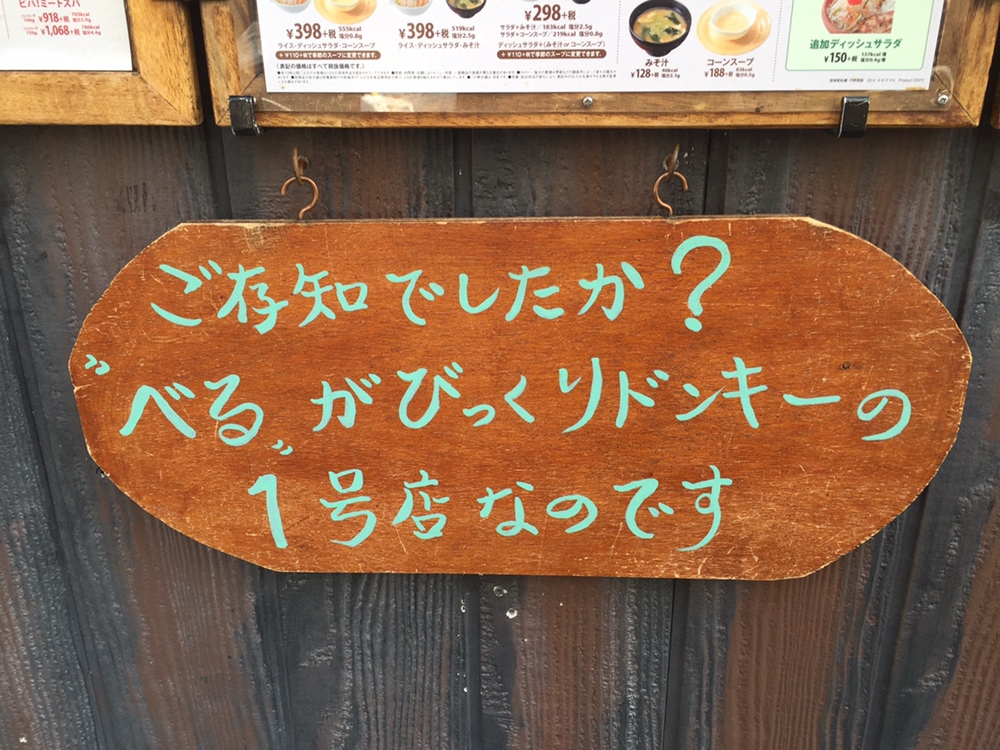 ビバ!ミートスパ
¥918+税
¥1,068+税
¥398+税
555kcal
塩分0.8g
ライス・ディッシュサラダ・コーンスープ
¥398+税
519kcal
塩分2.5g
ライス・ディッシュサラダ・みそ汁
¥298+税
サラダ+みそ汁/183kcal 塩分2.5g
サラダ+コーンスープ/219kcal 塩分0.8g
ディッシュサラダ+(みそ汁 or コーンスープ)
+¥110+税で季節のスープに変更できます。
(表記の価格はすべて税抜価格です。)
みそ汁
¥128+税
コーンスープ
¥188+税
追加ディッシュサラダ
¥150+税
ご存知でしたか?
"べる"がびっくりドンキーの
1号店なのです